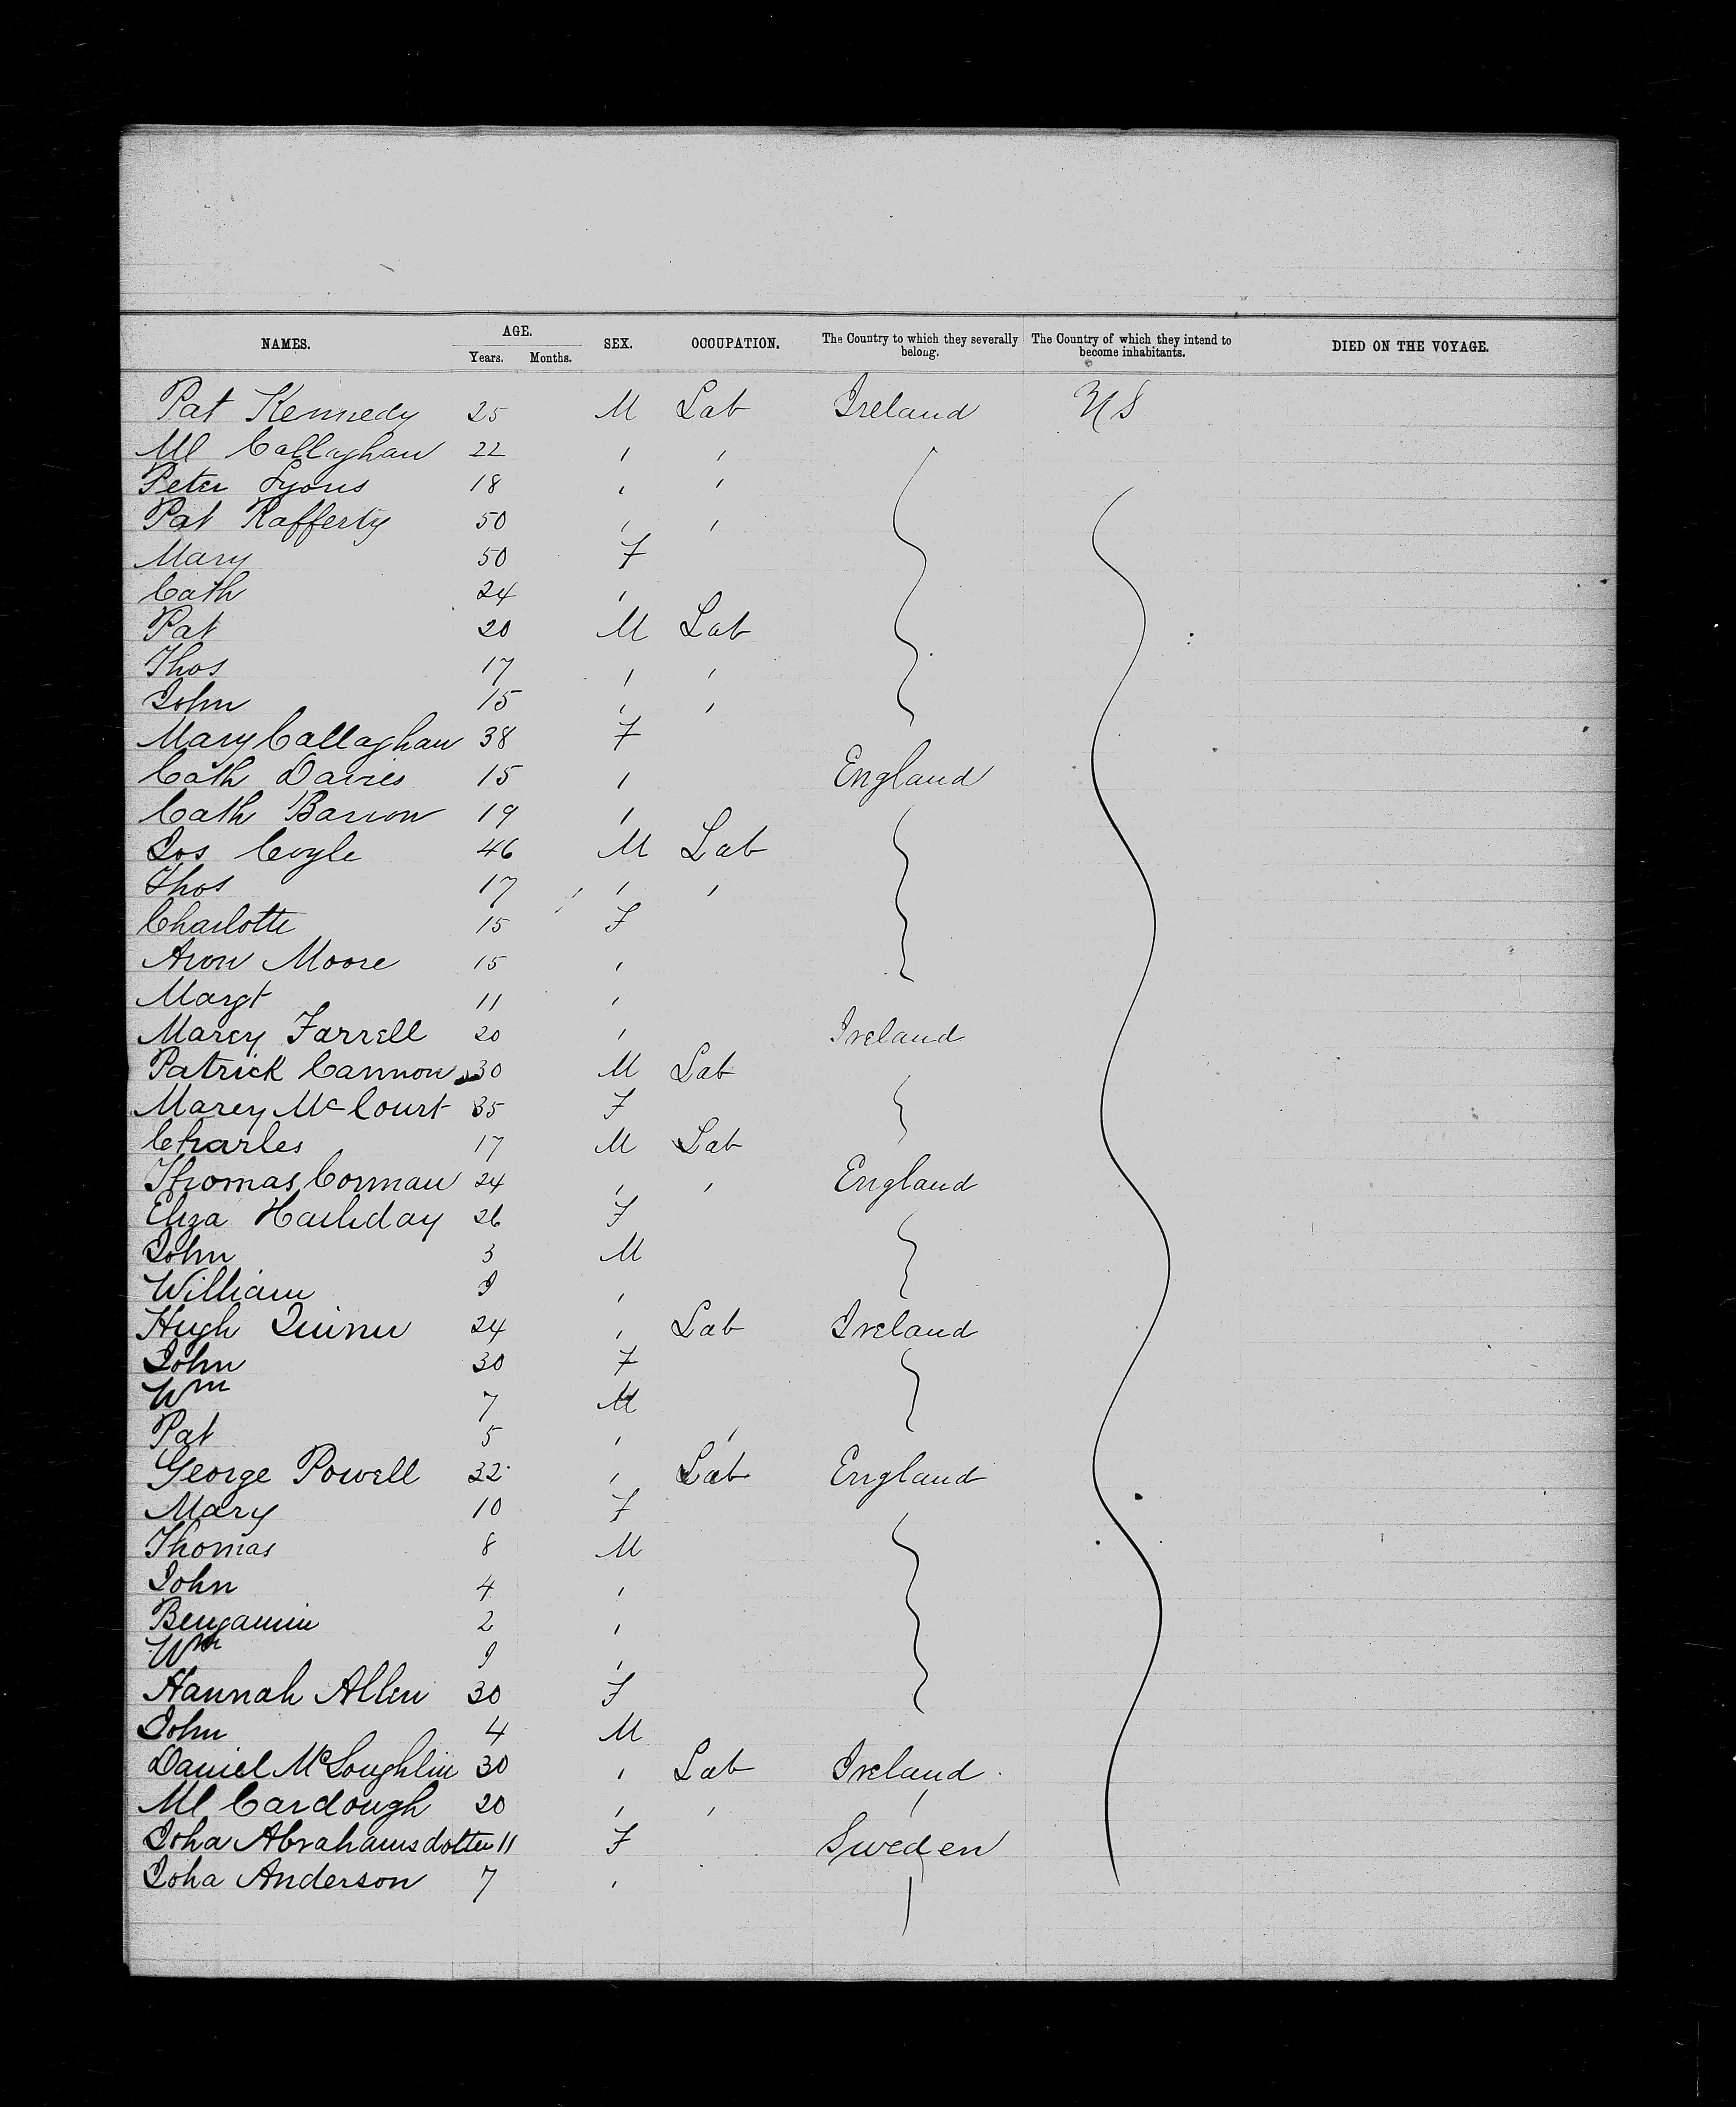 NAMES. AGE. Years. Months. SEX. OCCUPATION. The Country to which they severally belong. The Country of which they intend to become inhabitants. DIED ON THE VOYAGE.
Pat Kennedy 25 M Lab Ireland U S
Ml Callaghan 22 ' '
Peter Lyons 18 ' '
Pat Rafferty 50 ' '
Mary 50 F
Cath 24 '
Pat 20 M Lab
Thos 17 ' '
John 15 ' '
Mary Callaghan 38 F
Cath Davies 15 ' England
Cath Barron 19 '
Jos Coyle 46 M Lab
Thos 17 ' '
Charlotte 15 F
Aron Moore 15 '
Margt 11 '
Marcy Farrell 20 ' Ireland
Patrick Cannon 30 M Lab
Marcy McCourt 35 F
Charles 17 M Lab
Thomas Corman 24 ' ' England
Eliza Halliday 26 F
John 3 M
William 9 '
Hugh Quinn 24 ' Lab Ireland
John 30 F
Wm 7 M
Pat 5 ' '
George Powell 32 ' Lab England
Mary 10 F
Thomas 8 M
John 4 '
Benjamin 2 '
Wm 9 '
Hannah Allen 30 F
John 4 M
Daniel McLoughlin 30 ' Lab Ireland
Ml Cardough 20 ' ' '
Joha Abrahamsdotter 11 F Sweden
Joha Anderson 7 '